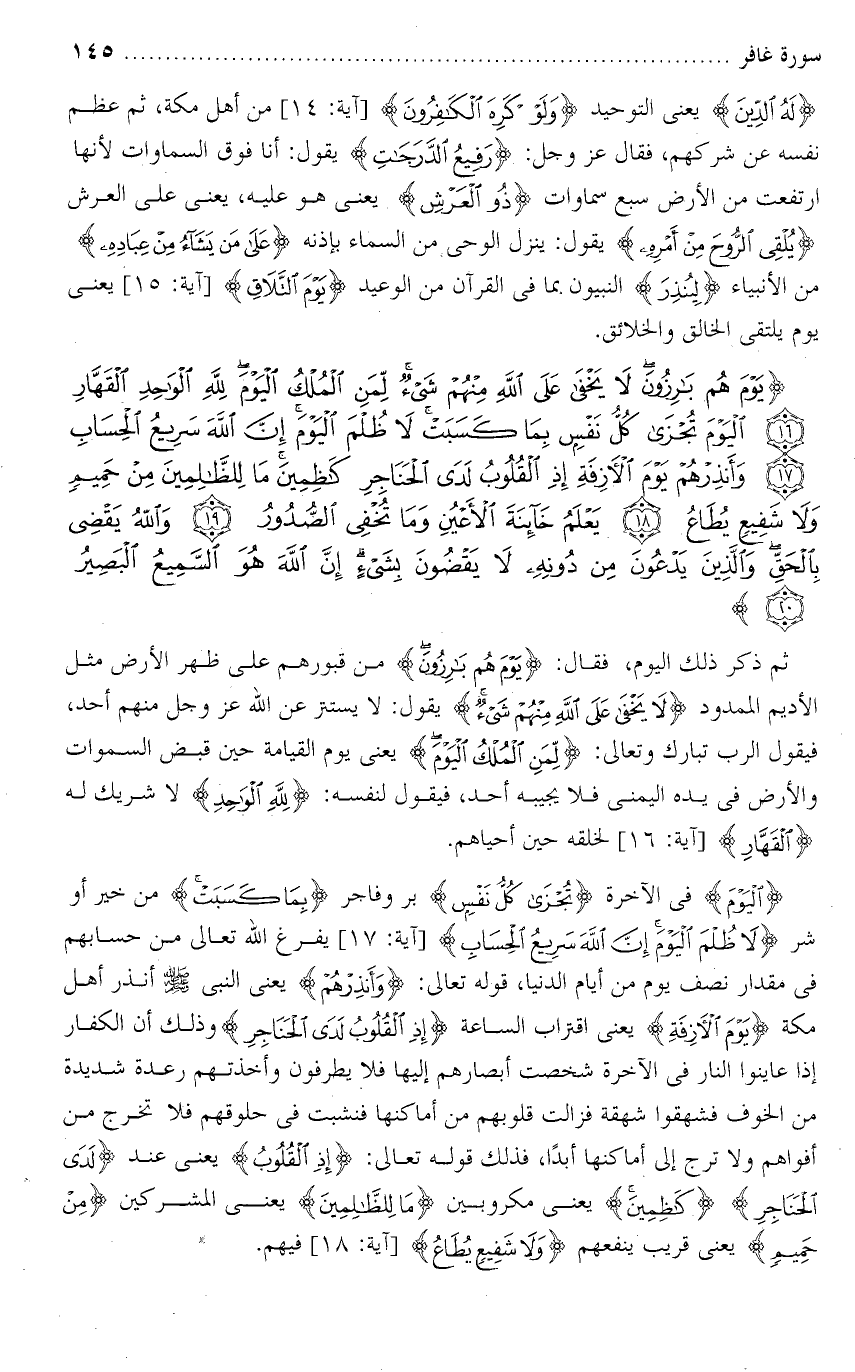 سورة غافر ........................................................................ ١٤٥
﴿لَهُ ٱلدِّينَ﴾ يعنى التوحيد ﴿وَلَوْ كَرِهَ ٱلْكَٰفِرُونَ﴾ [آية: ١٤] من أهل مكة، ثم عظم
نفسه عن شركهم، فقال عز وجل: ﴿رَفِيعُ ٱلدَّرَجَٰتِ﴾ يقول: أنا فوق السماوات لأنها
ارتفعت من الأرض سبع سماوات ﴿ذُو ٱلْعَرْشِ﴾ يعنى هو عليه، يعنى على العرش
﴿يُلْقِى ٱلرُّوحَ مِنْ أَمْرِهِۦ﴾ يقول: ينزل الوحى من السماء بإذنه ﴿عَلَىٰ مَن يَشَآءُ مِنْ عِبَادِهِۦ﴾
من الأنبياء ﴿لِيُنذِرَ﴾ النبيون بما فى القرآن من الوعيد ﴿يَوْمَ ٱلتَّلَاقِ﴾ [آية: ١٥] يعنى
يوم يلتقى الخالق والخلائق.
﴿يَوْمَ هُم بَٰرِزُونَ ۖ لَا يَخْفَىٰ عَلَى ٱللَّهِ مِنْهُمْ شَىْءٌ ۚ لِّمَنِ ٱلْمُلْكُ ٱلْيَوْمَ ۖ لِلَّهِ ٱلْوَٰحِدِ ٱلْقَهَّارِ
١٦ ٱلْيَوْمَ تُجْزَىٰ كُلُّ نَفْسٍۭ بِمَا كَسَبَتْ ۚ لَا ظُلْمَ ٱلْيَوْمَ ۚ إِنَّ ٱللَّهَ سَرِيعُ ٱلْحِسَابِ
١٧ وَأَنذِرْهُمْ يَوْمَ ٱلْءَازِفَةِ إِذِ ٱلْقُلُوبُ لَدَى ٱلْحَنَاجِرِ كَٰظِمِينَ ۚ مَا لِلظَّٰلِمِينَ مِنْ حَمِيمٍ
وَلَا شَفِيعٍ يُطَاعُ ١٨ يَعْلَمُ خَآئِنَةَ ٱلْأَعْيُنِ وَمَا تُخْفِى ٱلصُّدُورُ ١٩ وَٱللَّهُ يَقْضِى
بِٱلْحَقِّ ۖ وَٱلَّذِينَ يَدْعُونَ مِن دُونِهِۦ لَا يَقْضُونَ بِشَىْءٍ ۗ إِنَّ ٱللَّهَ هُوَ ٱلسَّمِيعُ ٱلْبَصِيرُ
٢٠﴾
ثم ذكر ذلك اليوم، فقال: ﴿يَوْمَ هُم بَٰرِزُونَ ۖ﴾ من قبورهم على ظهر الأرض مثل
الأديم الممدود ﴿لَا يَخْفَىٰ عَلَى ٱللَّهِ مِنْهُمْ شَىْءٌ ۚ﴾ يقول: لا يستتر عن الله عز وجل منهم أحد،
فيقول الرب تبارك وتعالى: ﴿لِّمَنِ ٱلْمُلْكُ ٱلْيَوْمَ ۖ﴾ يعنى يوم القيامة حين قبض السموات
والأرض فى يده اليمنى فلا يجيبه أحد، فيقول لنفسه: ﴿لِلَّهِ ٱلْوَٰحِدِ﴾ لا شريك له
﴿ٱلْقَهَّارِ﴾ [آية: ١٦] لخلقه حين أحياهم.
﴿ٱلْيَوْمَ﴾ فى الآخرة ﴿تُجْزَىٰ كُلُّ نَفْسٍ﴾ بر وفاجر ﴿بِمَا كَسَبَتْ ۚ﴾ من خير أو
شر ﴿لَا ظُلْمَ ٱلْيَوْمَ ۚ إِنَّ ٱللَّهَ سَرِيعُ ٱلْحِسَابِ﴾ [آية: ١٧] يفرغ الله تعالى من حسابهم
فى مقدار نصف يوم من أيام الدنيا، قوله تعالى: ﴿وَأَنذِرْهُمْ﴾ يعنى النبى ﷺ أنذر أهل
مكة ﴿يَوْمَ ٱلْءَازِفَةِ﴾ يعنى اقتراب الساعة ﴿إِذِ ٱلْقُلُوبُ لَدَى ٱلْحَنَاجِرِ﴾ وذلك أن الكفار
إذا عاينوا النار فى الآخرة شخصت أبصارهم إليها فلا يطرفون وأخذتهم رعدة شديدة
من الخوف فشهقوا شهقة فزالت قلوبهم من أماكنها فنشبت فى حلوقهم فلا تخرج من
أفواهم ولا ترج إلى أماكنها أبدًا، فذلك قوله تعالى: ﴿إِذِ ٱلْقُلُوبُ﴾ يعنى عند ﴿لَدَى
ٱلْحَنَاجِرِ﴾ ﴿كَٰظِمِينَ ۚ﴾ يعنى مكروبين ﴿مَا لِلظَّٰلِمِينَ﴾ يعنى المشركين ﴿مِنْ
حَمِيمٍ﴾ يعنى قريب ينفعهم ﴿وَلَا شَفِيعٍ يُطَاعُ﴾ [آية: ١٨] فيهم.